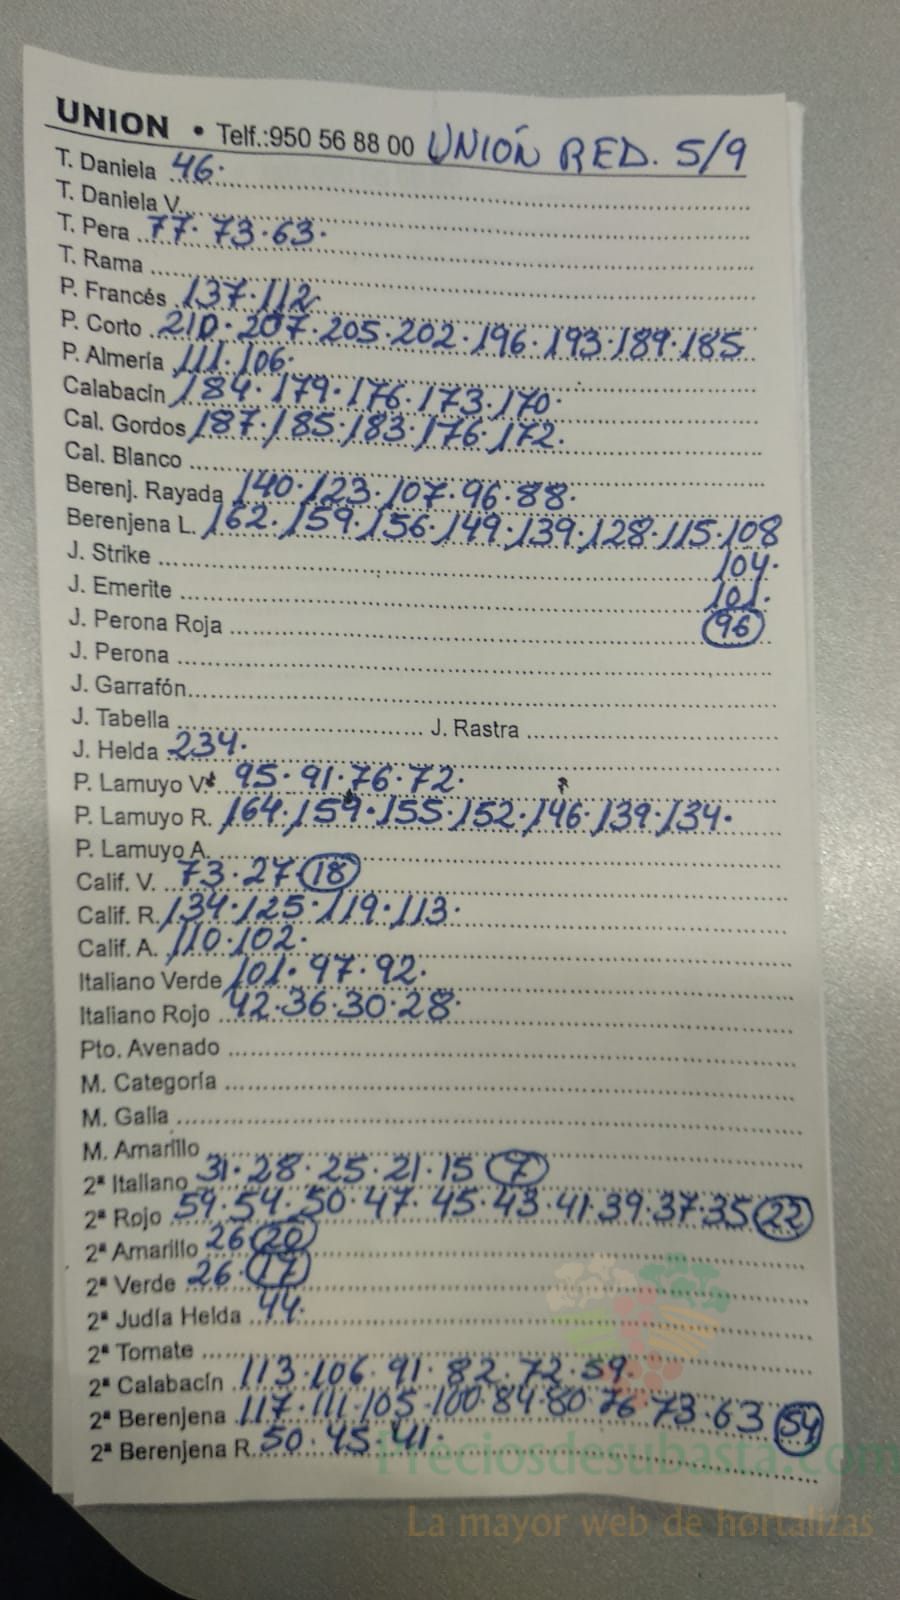 UNION • Telf.:950 56 88 00 UNIÓN RED. 5/9
T. Daniela 46.
T. Daniela V.
T. Pera 77. 73. 63.
T. Rama
P. Francés 137. 112
P. Corto 210. 207. 205. 202. 196. 193. 189. 185
P. Almería 111. 106.
Calabacín 184. 179. 176. 173. 170.
Cal. Gordos 187. 185. 183. 176. 172.
Cal. Blanco
Berenj. Rayada 140. 123. 107. 96. 88.
Berenjena L. 162. 159. 156. 149. 139. 128. 115. 108
J. Strike 104.
J. Emerite 101.
J. Perona Roja 96
J. Perona
J. Garrafón
J. Tabella J. Rastra
J. Helda 234.
P. Lamuyo V. 95. 91. 76. 72.
P. Lamuyo R. 164. 159. 155. 152. 146. 139. 134.
P. Lamuyo A.
Calif. V. 73. 27. 18
Calif. R. 134. 125. 119. 113.
Calif. A. 110. 102.
Italiano Verde 101. 97. 92.
Italiano Rojo 42. 36. 30. 28.
Pto. Avenado
M. Categoría
M. Galia
M. Amarillo
2ª Italiano 31. 28. 25. 21. 15 7
2ª Rojo 59. 54. 50. 47. 45. 43. 41. 39. 37. 35 22
2ª Amarillo 26 20
2ª Verde 26. 17
2ª Judía Helda 44.
2ª Tomate
2ª Calabacín 113. 106. 91. 82. 72. 59.
2ª Berenjena 117. 111. 105. 100. 84. 80. 76 73. 63 54
2ª Berenjena R. 50. 45. 41.
Preciosdesubasta.com
La mayor web de hortalizas